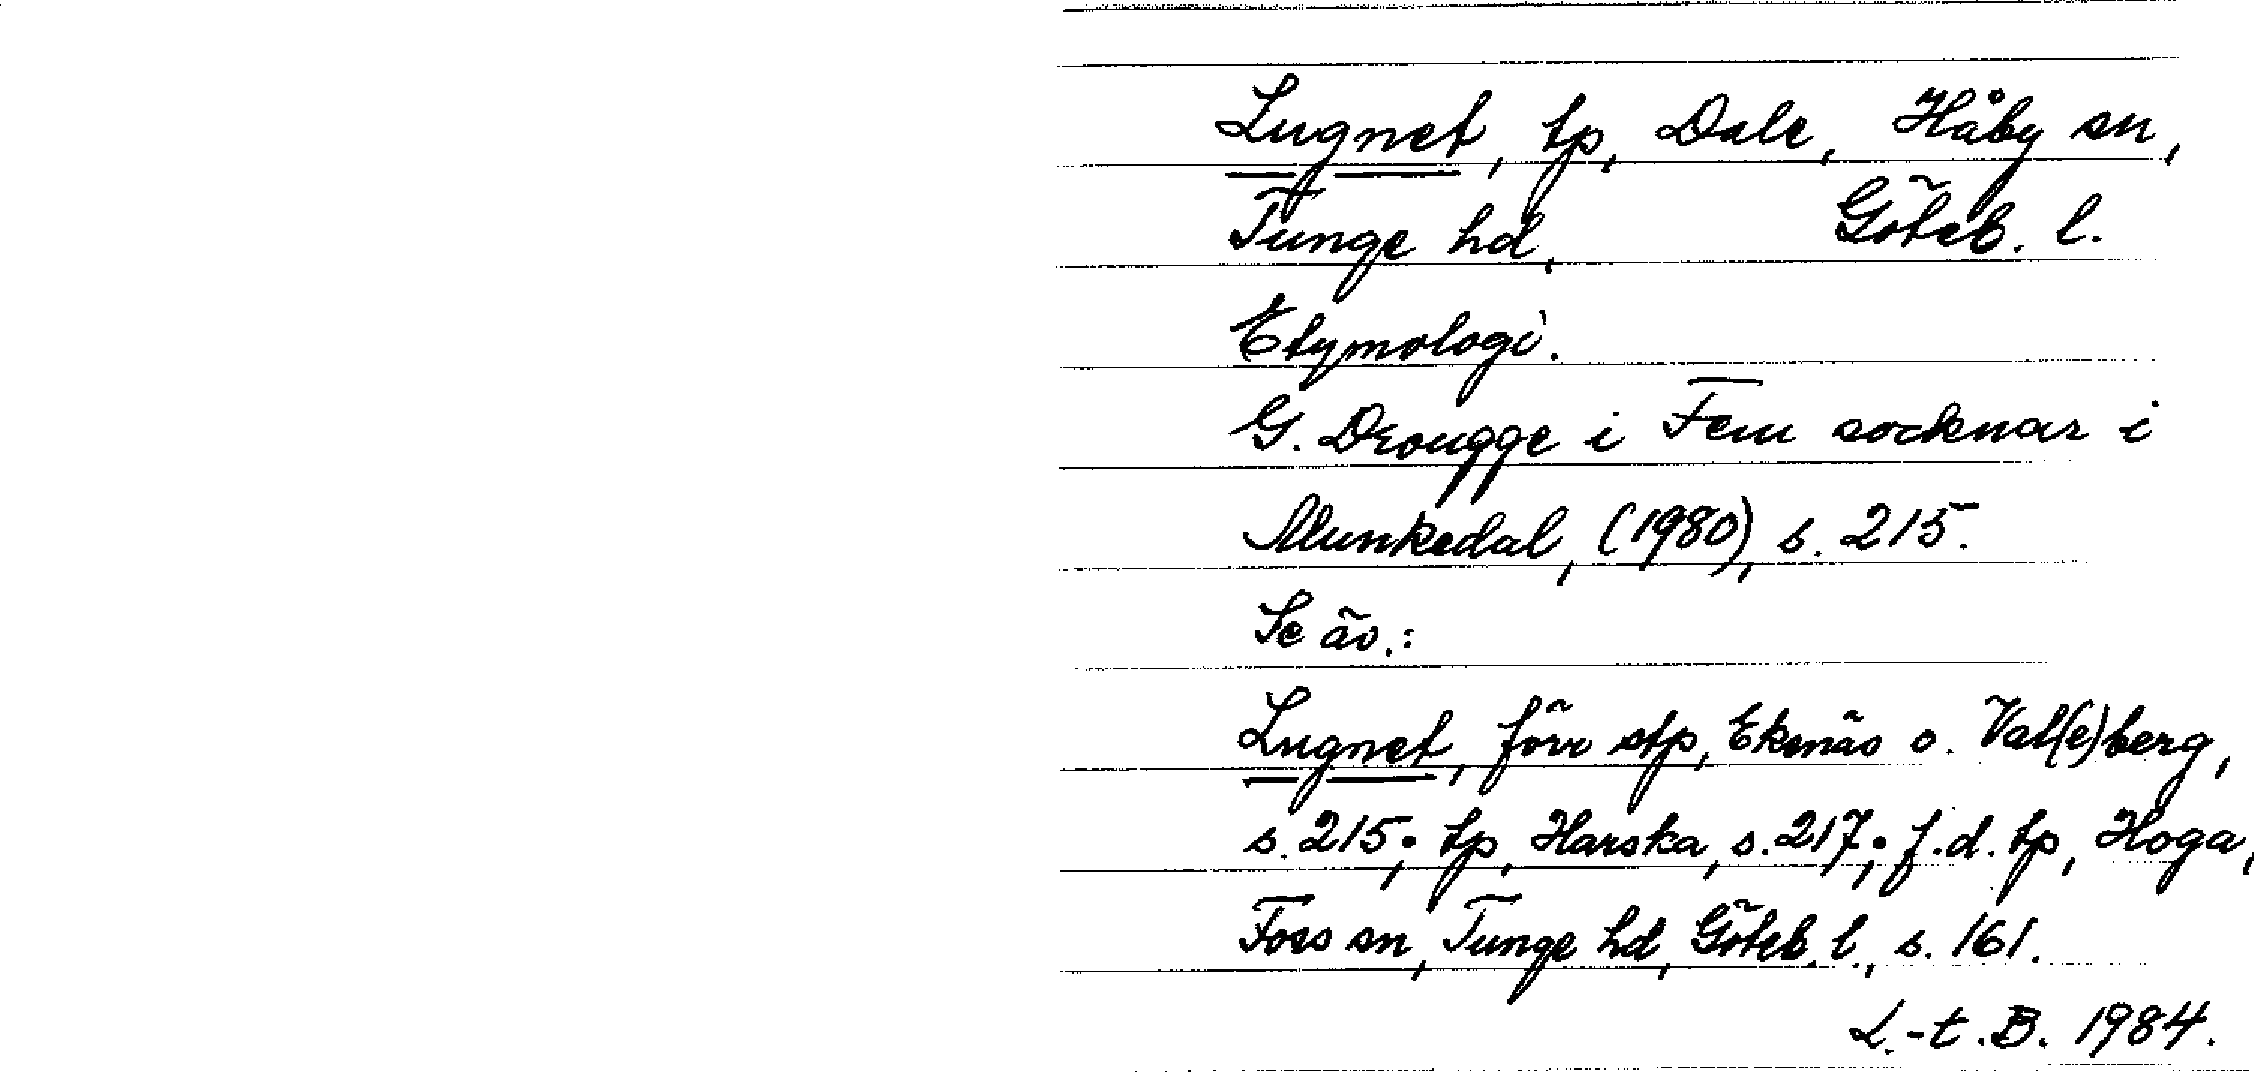 Lugnet, tp, Dale, Håby sn,
Tunge hd, Göteb. l.
Etymologi.
G. Drougge i Fem socknar i
Munkedal, (1980), s. 215.
Se äv.:
Lugnet, förr stp, Ekenäs o. Val(e)berg,
s. 215; tp, Harska, s. 217; f.d. tp, Hoga,
Foss sn, Tunge hd, Göteb. l., s. 161.
L.-t. B. 1984.